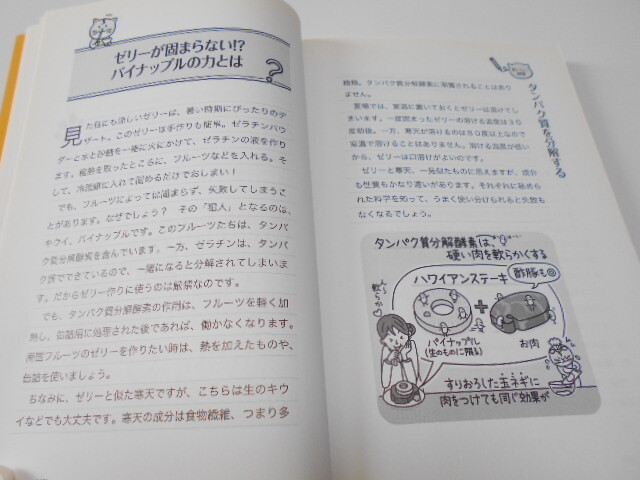 ゼリーが固まらない!?
パイナップルの力とは
?
見た目にも涼しいゼリーは、暑い時期にぴったりのデ
ザート。このゼリーは手作りも簡単。ゼラチンパウ
ダーと水と砂糖を一緒に火にかけて、ゼラチンの液を作り
ます。粗熱を取ったところに、フルーツなどを入れる。そ
して、冷蔵庫に入れて固めるだけでおしまい!
でも、フルーツによっては固まらず、失敗してしまうこ
とがあります。なぜでしょう? その「犯人」となるのは、
キウイ、パイナップルです。このフルーツたちは、タンパ
ク質分解酵素を含んでいます。一方、ゼラチンは、タンパ
ク質でできているので、一緒になると分解されてしまいま
す。だからゼリー作りに使うのは厳禁なのです。
でも、タンパク質分解酵素の作用は、フルーツを軽く加
熱し、缶詰用に処理された後であれば、働かなくなります。
南国フルーツのゼリーを作りたい時は、熱を加えたものや、
缶詰を使いましょう。
ちなみに、ゼリーと似た寒天ですが、こちらは生のキウ
イなどでも大丈夫です。寒天の成分は食物繊維、つまり多
糖類。タンパク質分解酵素に影響されることはあり
ません。
夏場では、室温に置いておくとゼリーは溶けてし
まいます。一度固まったゼリーの溶ける温度は30
度前後。一方、寒天が溶けるのは80度以上なので
室温で溶けることはありません。溶ける温度が低い
から、ゼリーは口溶けがよいのです。
ゼリーと寒天、一見似たものに思えますが、成分
も性質もかなり違いがあります。それぞれに秘めら
れた科学を知って、うまく使い分けられると失敗も
なくなるでしょう。
タンパク質を分解する
タンパク質分解酵素は、
硬い肉を軟らかくする
ハワイアンステーキ
酢豚も◎
軟らか
+
パイナップル
(生のものに限る)
お肉
すりおろした玉ネギに
肉をつけても同じ効果が